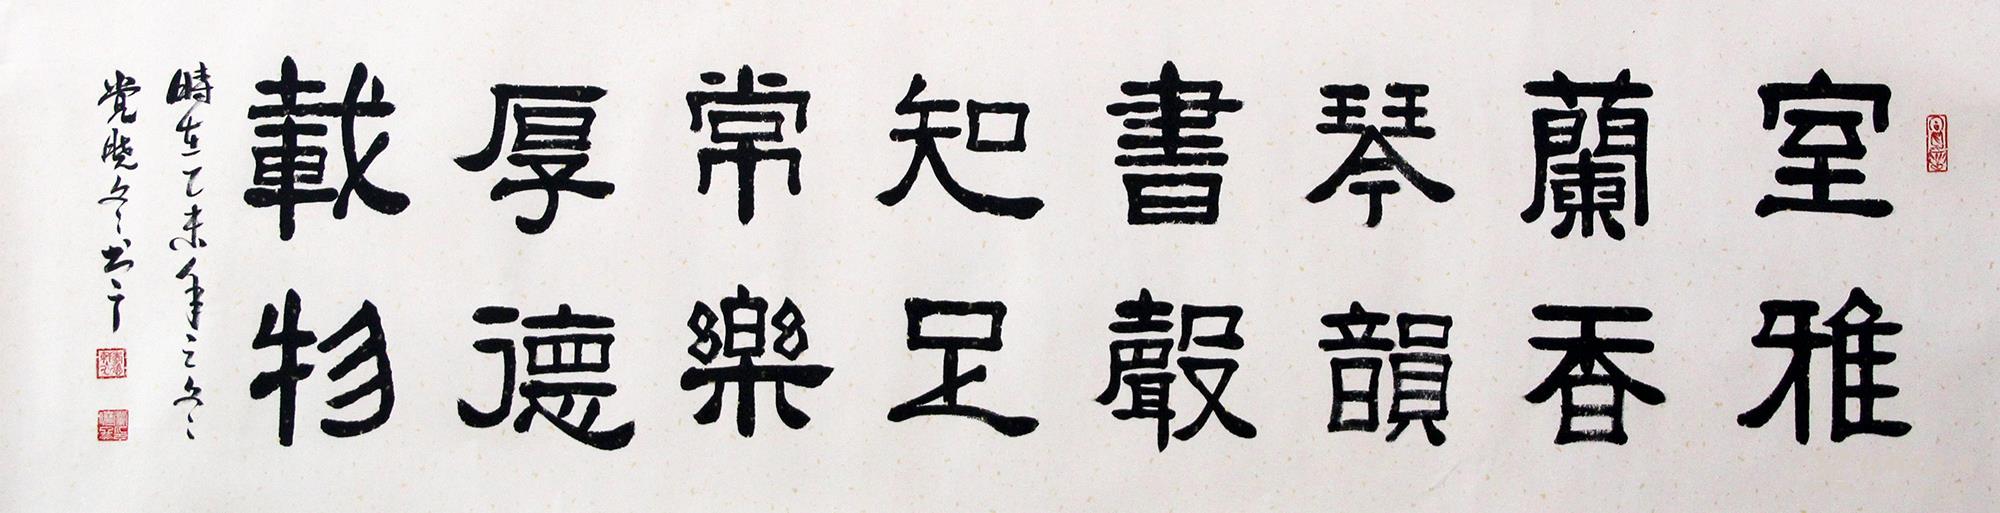 室雅
蘭香
琴韻
書聲
知足
常樂
厚德
載物
時在乙未年之冬
覺曉冬書